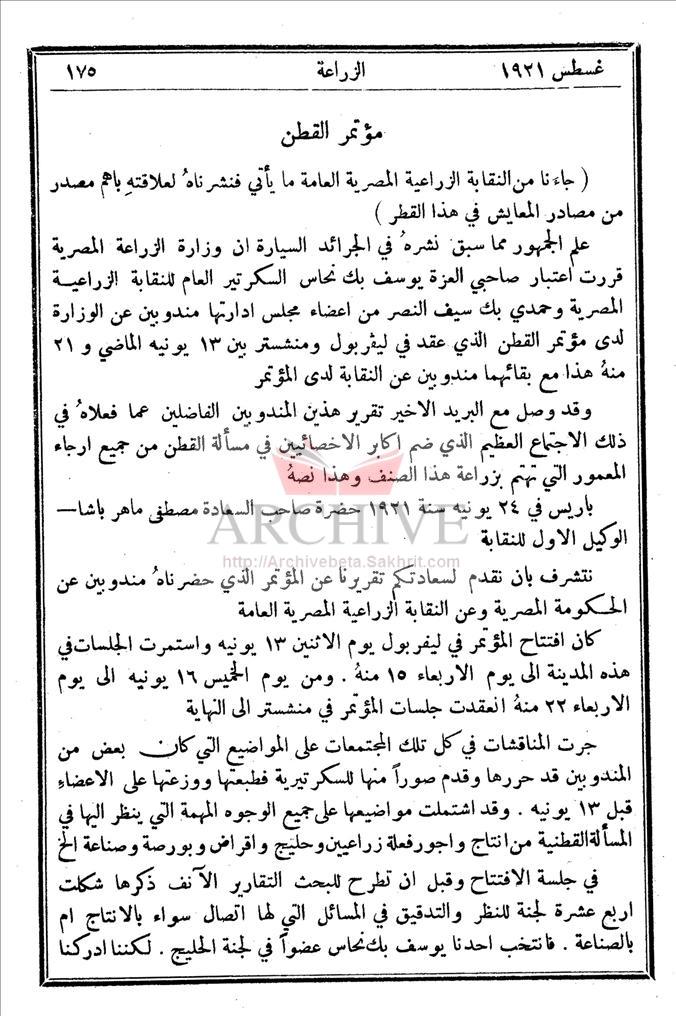 غسطس ١٩٢١ الزراعة ١٧٥
مؤتمر القطن
( جاءنا من النقابة الزراعية المصرية العامة ما يأتي فنشرناهُ لعلاقتهِ باهم مصدر
من مصادر المعايش في هذا القطر )
علم الجمهور مما سبق نشرهُ في الجرائد السيارة ان وزارة الزراعة المصرية
قررت اعتبار صاحبي العزة يوسف بك نحاس السكرتير العام للنقابة الزراعيـة
المصرية وحمدي بك سيف النصر من اعضاء مجلس ادارتها مندوبين عن الوزارة
لدى مؤتمر القطن الذي عقد في ليڤربول ومنشستر بين ١٣ يونيه الماضي و ٢١
منهُ هذا مع بقائهما مندوبين عن النقابة لدى المؤتمر
وقد وصل مع البريد الاخير تقرير هذين المندوبين الفاضلين عما فعلاهُ في
ذلك الاجتماع العظيم الذي ضم اكابر الاخصائيين في مسألة القطن من جميع ارجاء
المعمور التي تهتم بزراعة هذا الصنف وهذا نصهُ
باريس في ٢٤ يونيه سنة ١٩٢١ حضرة صاحب السعادة مصطفى ماهر باشا—
الوكيل الاول للنقابة
ARCHIVE
http://Archivebeta.Sakhrit.com
نتشرف بان نقدم لسعادتكم تقريرنا عن المؤتمر الذي حضرناهُ مندوبين عن
الحـكومة المصرية وعن النقابة الزراعية المصرية العامة
كان افتتاح المؤتمر في ليفربول يوم الاثنين ١٣ يونيه واستمرت الجلسات في
هذه المدينة الى يوم الاربعاء ١٥ منهُ . ومن يوم الخميس ١٦ يونيه الى يوم
الاربعاء ٢٢ منهُ انعقدت جلسات المؤتمر في منشستر الى النهاية
جرت المناقشات في كل تلك المجتمعات على المواضيع التي كان بعض من
المندوبين قد حررها وقدم صوراً منها للسكرتيرية فطبعتها ووزعتها على الاعضاء
قبل ١٣ يونيه . وقد اشتملت مواضيعها على جميع الوجوه المهمة التي ينظر اليها في
المسألة القطنية من انتاج واجور فعلة زراعيين وحليج واقراض وبورصة وصناعة الخ
في جلسة الافتتاح وقبل ان تطرح للبحث التقارير الآنف ذكرها شكلت
اربع عشرة لجنة للنظر والتدقيق في المسائل التي لها اتصال سواء بالانتاج ام
بالصناعة . فانتخب احدنا يوسف بك نحاس عضواً في لجنة الحليج . لكننا ادركنا